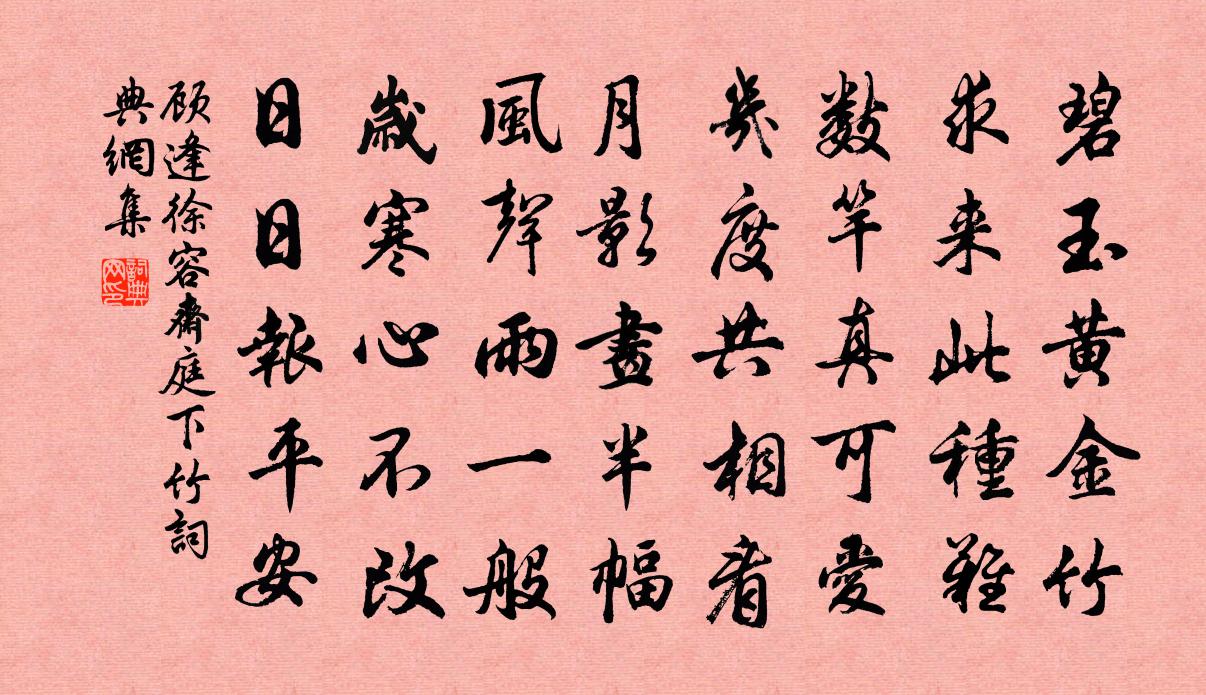 碧玉黄金竹
求来此種難
数竿真可愛
幾度共相看
月影畫半幅
風聲雨一般
歲寒心不改
日日報平安
顾逢徐容齋庭下竹詞
典網集
詞典网印